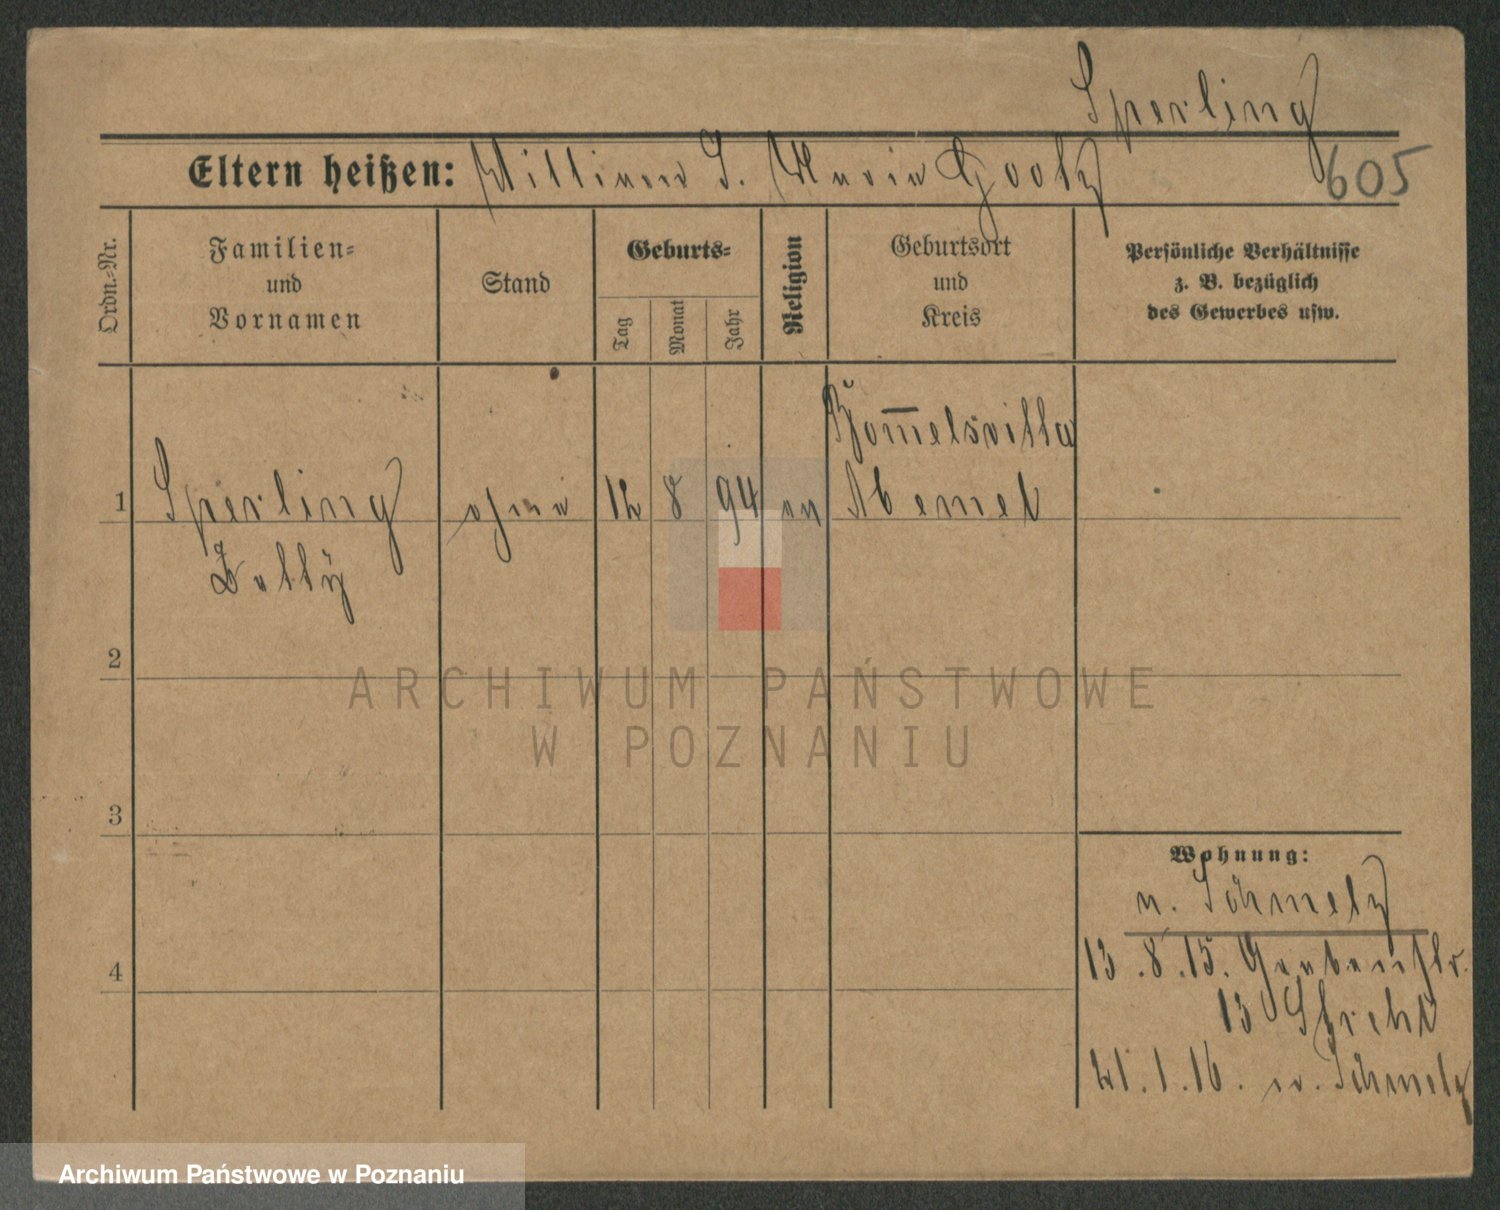 Sperling
605
Eltern heißen: William S. Maria Gootz
Ordn.-Nr.
Familien-
und
Vornamen
Stand
Geburts-
Tag
Monat
Jahr
Religion
Geburtsort
und
Kreis
Persönliche Verhältnisse
z. B. bezüglich
des Gewerbes usw.
1
Sperling
Dolly
ohne
12
8
94
ev
Bom̅elsvilla
2
3
4
Wohnung:
n. Schmelz
13.8.15. Grabenstr.
13
21.1.16. n. Schmelz
ARCHIWUM PAŃSTWOWE
W POZNANIU
Archiwum Państwowe w Poznaniu